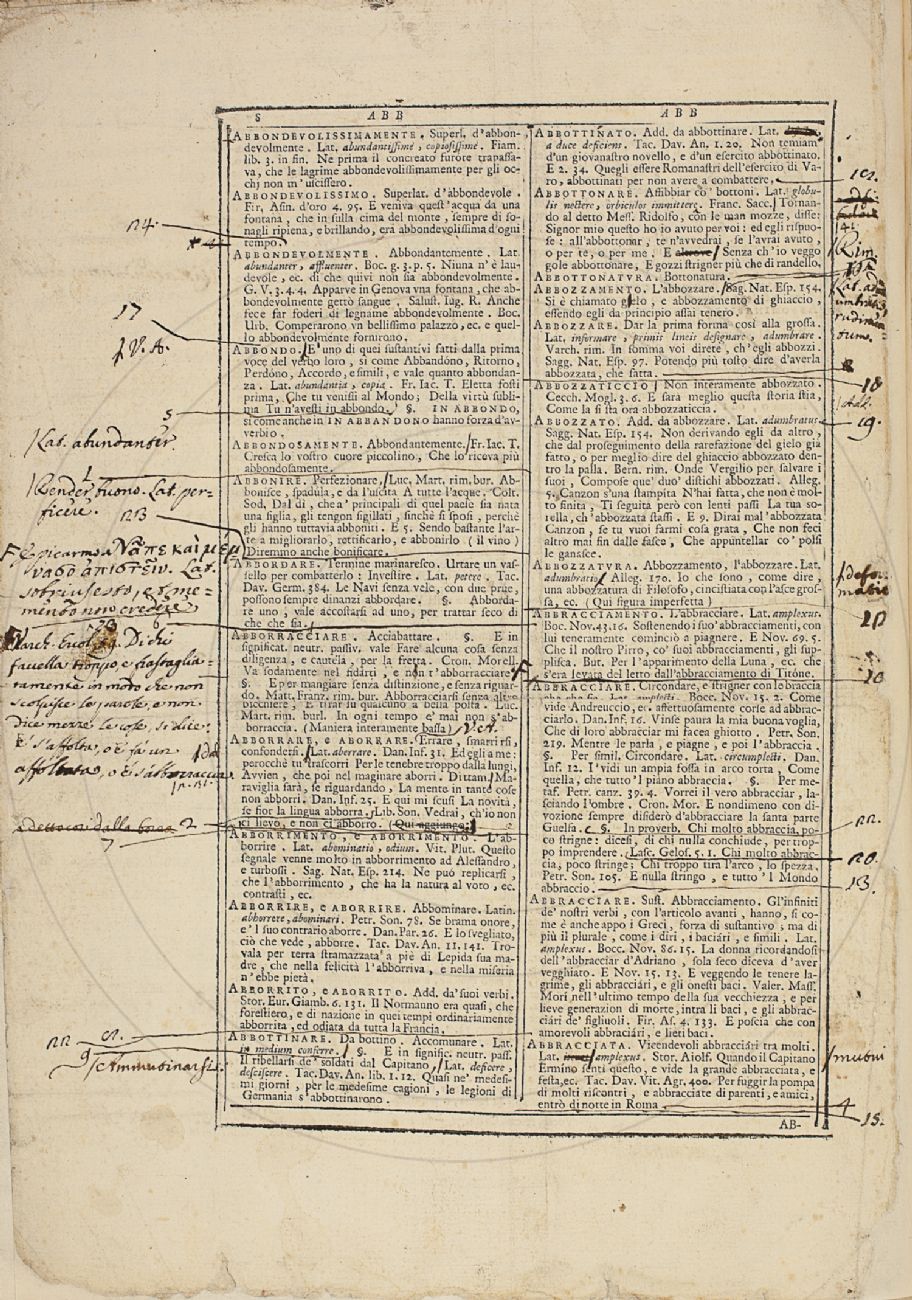 8 ABB
ABBONDEVOLISSIMAMENTE. Superl. d'abbon-
devolmente. Lat. abundantissimè, copiosissimè. Fiam.
lib. 3. in fin. Ne prima il concreato furore trapassa-
va, che le lagrime abbondevolissimamente per gli oc-
chj non m'uscissero.
ABBONDEVOLISSIMO. Superlat. d'abbondevole.
Fir. Asin. d'oro 4. 95. E veniva quest'acqua da una
fontana, che in sulla cima del monte, sempre di so-
nagli ripiena, e brillando, era abbondevolissima d'ogni
tempo.
ABBONDEVOLMENTE. Abbondantemente. Lat.
abundanter, affluenter. Boc. g. 3. p. 5. Niuna n'è lau-
devole, ec. di che quivi non sia abbondevolmente.
G. V. 3. 4. 4. Apparve in Genova una fontana, che ab-
bondevolmente gettò sangue. Salust. Iug. R. Anche
fece far foderi di legname abbondevolmente. Boc.
Urb. Comperarono un bellissimo palazzo, ec. e quel-
lo abbondevolmente fornirono.
ABBONDO. E' uno di quei sustantivi fatti dalla prima
voce del verbo loro, sì come Abbandóno, Ritorno,
Perdóno, Accordo, e simili, e vale quanto abbondan-
za. Lat. abundantia, copia. Fr. Iac. T. Eletta fosti
prima, Che tu venissi al Mondo; Della virtù subli-
ma Tu n'avesti in abbondo. §. IN ABBONDO,
sì come anche IN ABBANDONO hanno forza d'av-
verbio.
ABBONDOSAMENTE. Abbondantemente. Fr. Iac. T.
Cresca lo vostro cuore piccolino, Che lo riceva più
abbondosamente.
ABBONIRE. Perfezionare, Luc. Mart. rim. bur. Ab-
bonisce, spadula, e dà l'uscita A tutte l'acque. Colt.
Sod. Dal dì, che a' principali di quel paese sia nata
una figlia, gli tengon sigillati, sinchè si sposi, perchè
gli hanno tuttavia abboniti. E 5. Sendo bastante l'ar-
te a migliorarlo, rettificarlo, e abbonirlo (il vino)
Diremmo anche bonificare.
ABBORDARE. Termine marinaresco. Urtare un vas-
sello per combatterlo: Investire. Lat. petere. Tac.
Dav. Germ. 384. Le Navi senza vele, con due prùe,
possono sempre dinanzi abbordare. §. Abborda-
re uno, vale accostarsi ad uno, per trattar seco di
che che sia.
ABBORRACCIARE. Acciabattare. §. E in
significat. neutr. passiv. vale Fare alcuna cosa senza
diligenza, e cautela, per la fretta. Cron. Morell.
Va sodamente nel fidarti, e non t'abborracciare.
§. E per mangiare senza distinzione, e senza riguar-
do. Matt. Franz. rim. bur. Abborracciarsi senza ber
bicchiere, E tirar su qualcuno a bella posta. Luc.
Mart. rim. burl. In ogni tempo e' mai non s'ab-
borraccia. (Maniera interamente bassa) V. A.
ABBORRARE, e ABORRARE. Errare, smarrirsi,
confondersi. Lat. aberrare. Dan. Inf. 31. Ed egli a me:
perocchè tu trascorri Per le tenebre troppo dalla lungi,
Avvien, che poi nel maginare aborri. Dittam. Ma-
raviglia sarà, se riguardando, La mente in tante cose
non abborri. Dan. Inf. 25. E qui mi scusi La novità,
se fior la lingua abborra. Lib. Son. Vedrai, ch'io non
ci lievo, e non ci abborro. (Qui aggiungo.)
ABBORRIMENTO, e ABORRIMENTO. L'ab-
borrire. Lat. abominatio, odium. Vit. Plut. Questo
segnale venne molto in abborrimento ad Alessandro,
e turbossi. Sag. Nat. Esp. 214. Ne può replicarsi,
che l'abborrimento, che ha la natura al voto, ec.
contrasti, ec.
ABBORRIRE, e ABORRIRE. Abbominare. Latin.
abhorrere, abominari. Petr. Son. 78. Se brama onore,
e'l suo contrario aborre. Dan. Par. 26. E lo svegliato,
ciò che vede, abborre. Tac. Dav. An. 11. 141. Tro-
vala per terra stramazzata a piè di Lepida sua ma-
dre, che nella felicità l'abborriva, e nella miseria
n'ebbe pietà.
ABBORRITO, e ABORRITO. Add. da' suoi verbi.
Stor. Eur. Giamb. 6. 131. Il Normanno era quasi, che
forestiero, e di nazione in quei tempi ordinariamente
abborrita, ed odiata da tutta la Francia.
ABBOTTINARE. Da bottino. Accomunare. Lat.
in medium conferre. §. E in signific. neutr. pass.
Il ribellarsi de' soldati dal Capitano, Lat. deficere,
desciscere. Tac. Dav. An. lib. 1. 12. Quasi ne' medesi-
mi giorni, per le medesime cagioni, le legioni di
Germania s'abbottinarono.
ABB
ABBOTTINATO. Add. da abbottinare. Lat.
a duce deficiens. Tac. Dav. An. 1. 20. Non temiam
d'un giovanastro novello, e d'un esercito abbottinato.
E 2. 34. Quegli essere Romanastri dell'esercito di Va-
ro, abbottinati per non avere a combattere.
ABBOTTONARE. Affibbiar co' bottoni. Lat. globu-
lis nectere, orbiculos immittere. Franc. Sacc. Tornan-
do al detto Mess. Ridolfo, con le man mozze, disse:
Signor mio questo ho io avuto per voi: ed egli rispuo-
se: all'abbottonar, te n'avvedrai, se l'avrai avuto,
o per te, o per me. E Senza ch'io veggo
gole abbottonare, E gozzi strigner più che di randello.
ABBOTTONATURA. Bottonatura.
ABBOZZAMENTO. L'abbozzare. Sag. Nat. Esp. 154.
Si è chiamato gielo, e abbozzamento di ghiaccio,
essendo egli da principio assai tenero.
ABBOZZARE. Dar la prima forma così alla grossa.
Lat. informare, primis lineis designare, adumbrare.
Varch. rim. In somma voi direte, ch'egli abbozzi.
Sagg. Nat. Esp. 97. Potendo più tosto dire d'averla
abbozzata, che fatta.
ABBOZZATICCIO. Non interamente abbozzato.
Cecch. Mogl. 3. 6. E sarà meglio questa storia stia,
Come la si sta ora abbozzaticcia.
ABBOZZATO. Add. da abbozzare. Lat. adumbratus.
Sagg. Nat. Esp. 154. Non derivando egli da altro,
che dal proseguimento della rarefazione del gielo già
fatto, o per meglio dire del ghiaccio abbozzato den-
tro la palla. Bern. rim. Onde Vergilio per salvare i
suoi, Compose que' duo' distichi abbozzati. Alleg.
5. Canzon s'una stampita N'hai fatta, che non è mol-
to finita, Ti seguita però con lenti passi La tua so-
rella, ch'abbozzata stassi. E 9. Dirai mal'abbozzata
Canzon, se tu vuoi farmi cosa grata, Che non feci
altro mai fin dalle fasce, Che appuntellar co' polsi
le ganasce.
ABBOZZATURA. Abbozzamento, l'abbozzare. Lat.
adumbratio. Alleg. 170. Io che sono, come dire,
una abbozzatura d'Ulivo, cincistiata con l'asce gros-
sa, ec. (Qui figura imperfetta)
ABBRACCIAMENTO. L'abbracciare. Lat. amplexus.
Boc. Nov. 43. 16. Sostenendo i suo' abbracciamenti, con
lui teneramente cominciò a piagnere. E Nov. 69. 5.
Che il nostro Pirro, co' suoi abbracciamenti, gli sup-
plisca. But. Per l'apparimento della Luna, ec. che
s'era levata del letto dall'abbracciamento di Titóne.
ABBRACCIARE. Circondare, e strigner con le braccia
Bocc. Nov. 13. 2. Come
vide Andreuccio, ec. affettuosamente corse ad abbrac-
ciarlo. Dan. Inf. 16. Vinse paura la mia buona voglia,
Che di loro abbracciar mi facea ghiotto. Petr. Son.
219. Mentre le parla, e piagne, e poi l'abbraccia.
§. Per simil. Circondare. Lat. circumplecti. Dan.
Inf. 12. I' vidi un ampia fossa in arco torta, Come
quella, che tutto 'l piano abbraccia. §. Per me-
taf. Petr. canz. 39. 4. Vorrei il vero abbracciar, la-
sciando l'ombre. Cron. Mor. E nondimeno con di-
vozione sempre disiderò d'abbracciare la santa parte
Guelfa. §. In proverb. Chi molto abbraccia, po-
co strigne: dicesi, di chi nulla conchiude, per trop-
po imprendere. Lasc. Gelos. 5. 1. Chi molto abbrac-
cia, poco stringe; Chi troppo tira l'arco, lo spezza.
Petr. Son. 105. E nulla stringo, e tutto 'l Mondo
abbraccio.
ABBRACCIARE. Sust. Abbracciamento. Gl'infiniti
de' nostri verbi, con l'articolo avanti, hanno, sì co-
me è anche appo i Greci, forza di sustantivo; ma di
più il plurale, come i diri, i baciári, e simili. Lat.
amplexus. Bocc. Nov. 86. 15. La donna ricordandosi
dell'abbracciar d'Adriano, sola seco diceva d'aver
vegghiato. E Nov. 15. 13. E veggendo le tenere la-
grime, gli abbracciári, e gli onesti baci. Valer. Mass.
Morì nell'ultimo tempo della sua vecchiezza; e per
lieve generazion di morte, intra li baci, e gli abbrac-
ciári de' figliuoli. Fir. As. 4. 133. E poscia che con
amorevoli abbracciári, e lieti baci.
ABBRACCIATA. Vicendevoli abbracciári tra molti.
Lat. amplexus. Stor. Aiolf. Quando il Capitano
Ermino sentì questo, e vide la grande abbracciata, e
festa, ec. Tac. Dav. Vit. Agr. 400. Per fuggir la pompa
di molti riscontri, e abbracciate di parenti, e amici,
entrò di notte in Roma.
AB-
24.
17
V. A.
5
Lat. abundanter
Render buono. Lat. per-
ficere.
213
Epicarmo
Lat.
6
Varch. Ercol. Di chi
favella troppo e frastaglia-
tamente in modo che non
scolpisce le parole, e non
dice mezze le cose, si dice
e' s'affolta, o e' fa un
affoltata, o e' s'abborraccia
2
7
22
9
Ammutinarsi.
Rim.
18
Add.
19.
20
22.
20.
13.
4
15.